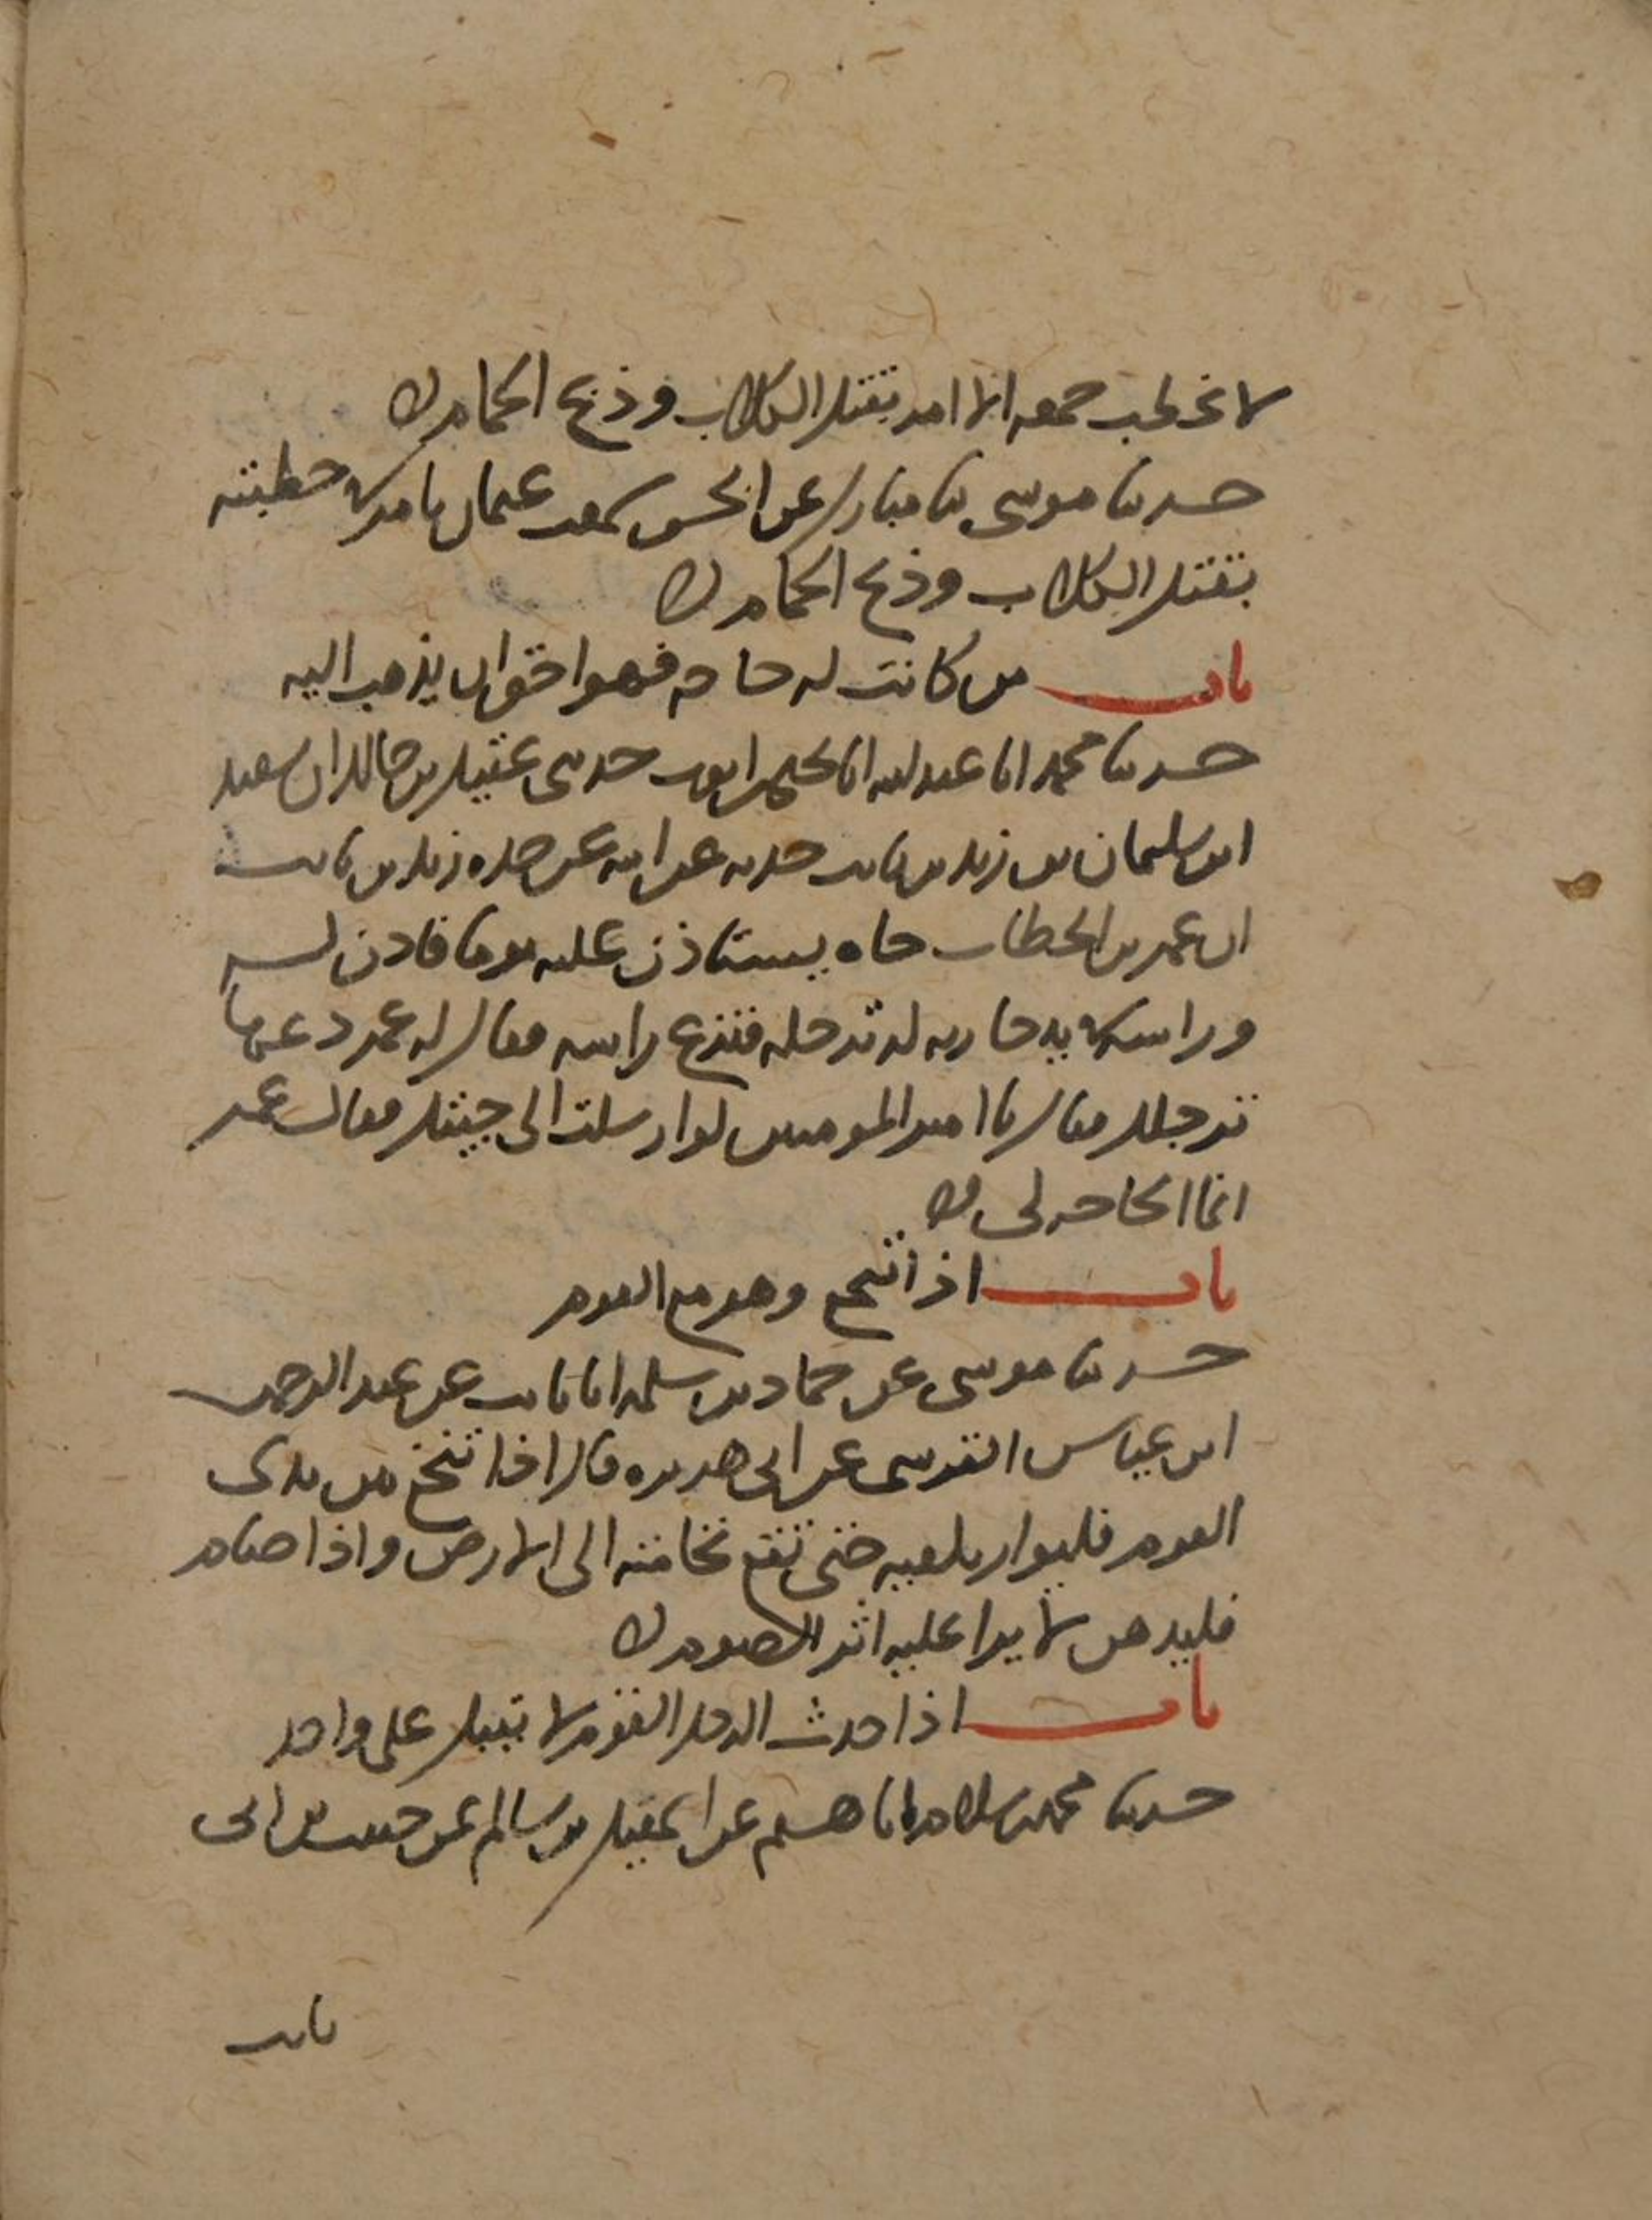 لا يخطب جمعه الا امر بقتل الكلاب وذبح الحمام
حدثنا موسى ثنا مبارك عن الحسن سمعت عثمان يامر في خطبته
بقتل الكلاب وذبح الحمام
باب من كانت له حاجه فهو احق ان يذهب اليه
حدثنا محمد انا عبد الله انا يحيى بن ايوب حدثني عقيل بن خالد ان سعيد
ابن سليمان بن زيد بن ثابت حدثه عن ابيه عن جده زيد بن ثابت
ان عمر بن الخطاب جاه يستاذن عليه يوما فاذن له
وراسه في يد جاريه له ترجله فنزع راسه فقال له عمر دعها
ترجلك فقال يا امير المومنين لو ارسلت الي جيتك فقال عمر
انما الحاجه لي
باب اذا تنخع وهو مع القوم
حدثنا موسى عن حماد بن سلمه انا ثابت عن عبد الرحمن
ابن عياس القرسى عن ابي هريره قال اذا تنخع بين يدى
القوم فليوار بكفيه حتى تقع نخاعته الى الارض واذا صام
فليدهن لا يرا عليه اثر الصوم
باب اذا حدث الرجل القوم لا يقبل على واحد
حدثنا محمد بن سلام انا هشيم عن اسمعيل بن سالم عن حبيب بن ابى
ثابت